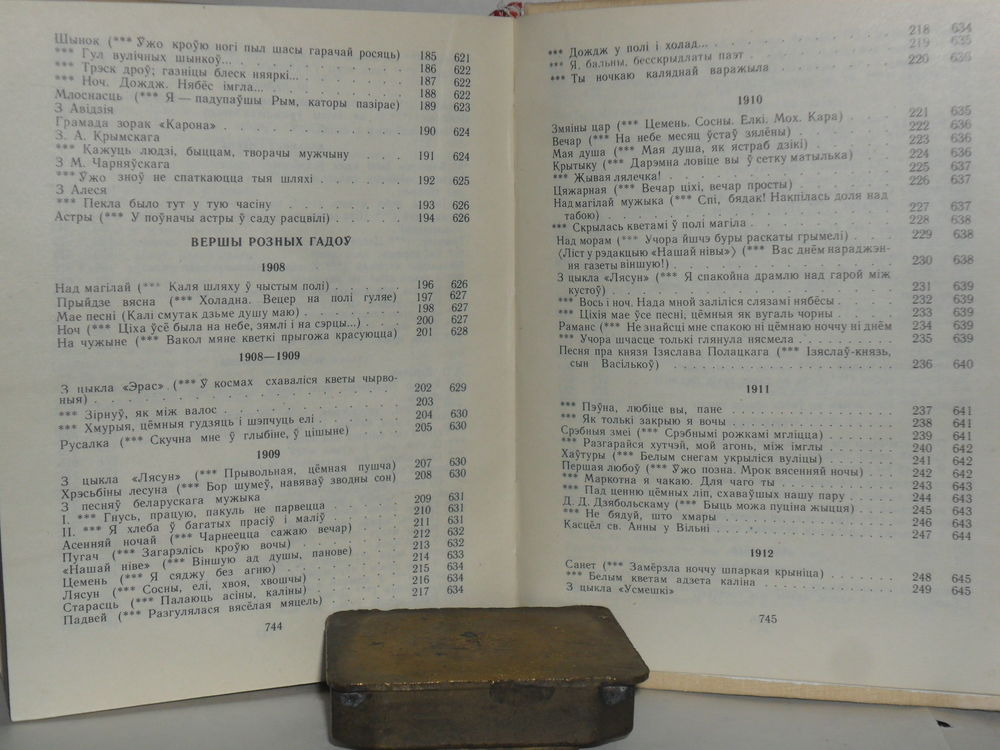 Шынок (*** Ўжо кроўю ногі пыл шасы гарачай росяць) 185 621
*** Гул вулічных шынкоў... 186 622
*** Трэск дроў; газніцы блеск няяркі... 187 622
*** Ноч. Дождж. Нябёс імгла... 188 622
Млоснасць (*** Я — падупаўшы Рым, каторы пазірае) 189 623
З Авідзія
Грамада зорак «Карона» 190 624
З. А. Крымскага
*** Кажуць людзі, быццам, творачы мужчыну 191 624
З М. Чарняўскага
*** Ўжо зноў не спаткаюцца тыя шляхі 192 625
З Алеся
*** Пекла было тут у тую часіну 193 626
Астры (*** У поўначы астры ў саду расцвілі) 194 626
ВЕРШЫ РОЗНЫХ ГАДОЎ
1908
Над магілай (*** Каля шляху ў чыстым полі) 196 626
Прыйдзе вясна (*** Холадна. Вецер на полі гуляе) 197 627
Мае песні (Калі смутак дзьме душу маю) 198 627
Ноч (*** Ціха ўсё была на небе, зямлі і на сэрцы...) 200 627
На чужыне (*** Вакол мяне кветкі прыгожа красуюцца) 201 628
1908—1909
З цыкла «Эрас» (*** Ў космах схаваліся кветы чырво-
ныя) 202 629
*** Зірнуў, як між валос 203
*** Хмурыя, цёмныя гудзяць і шэпчуць елі 204 630
Русалка (*** Скучна мне ў глыбіне, ў цішыне) 205 630
1909
З цыкла «Лясун» (*** Прывольная, цёмная пушча) 207 630
Хрэсьбіны лесуна (*** Бор шумеў, навяваў зводны сон) 208 630
З песняў беларускага мужыка
I. *** Гнусь, працую, пакуль не парвецца 209 631
II. *** Я хлеба ў багатых прасіў і маліў 210 631
Асенняй ночай (*** Чарнеецца сажаю вечар) 211 631
Пугач (*** Загарэлісь кроўю вочы) 212 632
«Нашай ніве» (*** Віншую ад душы, панове) 213 632
Цемень (*** Я сяджу без агню) 214 633
Лясун (*** Сосны, елі, хвоя, хвошчы) 215 634
Старасць (*** Палаюць асіны, каліны) 216 634
Падвей (*** Разгулялася вясёлая мяцель) 217 634
744
*** Дождж у полі і холад... 218 634
*** Я, бальны, бесскрыдлаты паэт 219 635
*** Ты ночкаю каляднай варажыла 220 635
1910
Змяіны цар (*** Цемень. Сосны. Ёлкі. Мох. Кара) 221 635
Вечар (*** На небе месяц ўстаў зялёны) 222 636
Мая душа (*** Мая душа, як ястраб дзікі) 223 636
Крытыку (*** Дарэмна ловіце вы ў сетку матылька) 224 636
*** Жывая лялечка! 225 637
Цяжарная (*** Вечар ціхі, вечар просты) 226 637
Над магілай мужыка (*** Спі, бядак! Накпілась доля над
табою) 227 637
*** Скрылась кветамі ў полі магіла 228 638
Над морам (*** Учора йшчэ буры раскаты грымелі) 229 638
(Ліст у рэдакцыю «Нашай нівы») (*** Вас днём нараджэн-
ня газеты віншую!) 230 638
З цыкла «Лясун» (*** Я спакойна драмлю над гарой між
кустоў) 231 639
*** Вось і ноч. Нада мной заліліся слязамі нябёсы 232 639
*** Ціхія мае ўсе песні, цёмныя як вугаль чорны 233 639
Раманс (*** Не знайсці мне спакою ні цёмнаю ноччу ні днём 234 639
*** Учора шчасце толькі глянула нясмела 235 639
Песня пра князя Ізяслава Полацкага (*** Ізяслаў-князь,
сын Васількоў) 236 640
1911
*** Пэўна, любіце вы, пане 237 641
*** Як толькі закрыю я вочы 238 641
Срэбныя змеі (*** Срэбнымі рожкамі мгліцца) 239 641
*** Разгарайся хутчэй, мой агонь, між імглы 240 642
Хаўтуры (*** Белым снегам укрыліся вуліцы) 241 642
Першая любоў (*** Ўжо позна. Мрок вясенняй ночы) 242 642
*** Маркотна я чакаю. Для чаго ты 243 643
*** Пад ценню цёмных ліп, схаваўшых нашу пару 244 643
Д. Д. Дзябольскаму (*** Быць можа пуціна жыцця) 245 643
*** Не бядуй, што хмары 246 643
Касцёл св. Анны у Вільні 247 644
1912
Санет (*** Замёрзла ноччу шпаркая крыніца)
*** Белым кветам адзета каліна 248 645
З цыкла «Усмешкі» 249 645
745